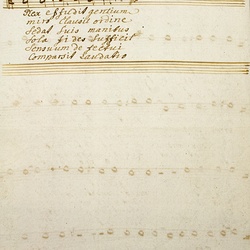 Rex effudit gentium
miro Clausit ordine
Sedat suis manibus
Sola fides sufficit
Sensuum defectui
Comparsit Laudatio